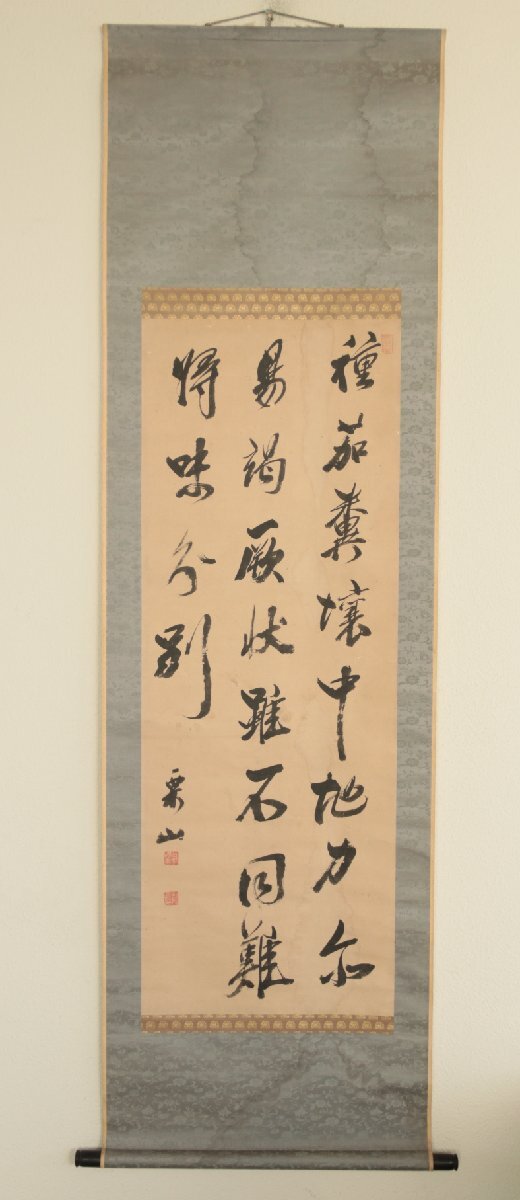 種茄糞壤中地力尔
易竭厥状雖不同難
将味分別
栗山